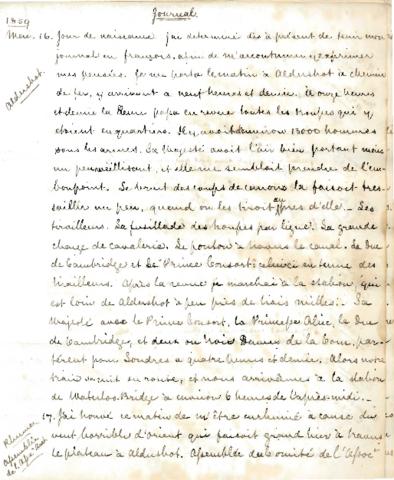 Journal
1859
Mai. 16. Jour de naissance j'ai determiné dès à présent de tenir mon
journal en françois, afin de m'accoutumer à y exprimer
mes pensées. Je me porta le matin à Aldershot à chemin
Aldershot.
de fer, y arrivant à neuf heures et demie. À onze heures
et demie la Reine passa en revue toutes les troupes qui y
étoient en quartiers. Il y avoit environ 13000 hommes
sous les armes. Sa Majesté avoit l'air bien portant mais
un peu vieillissant, et elle me sembloit prendre de l'em-
bonpoint. Le bruit des coups de canon la faisoit tres-
saillir un peu, quand on les tiroit auprès d'elle. - Les
tirailleurs. La fusillade des troupes par ligne. La grande
charge de cavalerie. Le ponton à travers le canal. Le Duc
de Cambridge et Le Prince Consort, celui-ci en tenue des
tirailleurs. Après la revue je marchai à la station, qui
est loin de Aldershot à peu près de trois milles. Sa
Majesté avec le Prince Consort, la Princesse Alice, le Duc
de Cambridge, et deux ou trois Dames de la Cour, par-
tirent pour Londres a quatre heures et demie. Alors mon
train se mit en route, et nous arrivâmes à la station
de Waterloo Bridge à environ 6 heures de l'après-midi.
17. J'ai trouvé ce matin de m'être enrhumé à cause du
Rhume
vent horrible d'orient qui faisoit grand hier à travers
Assemblée
le plateau à Aldershot. Assemblée du Comité de l'"Assoc"
de l'